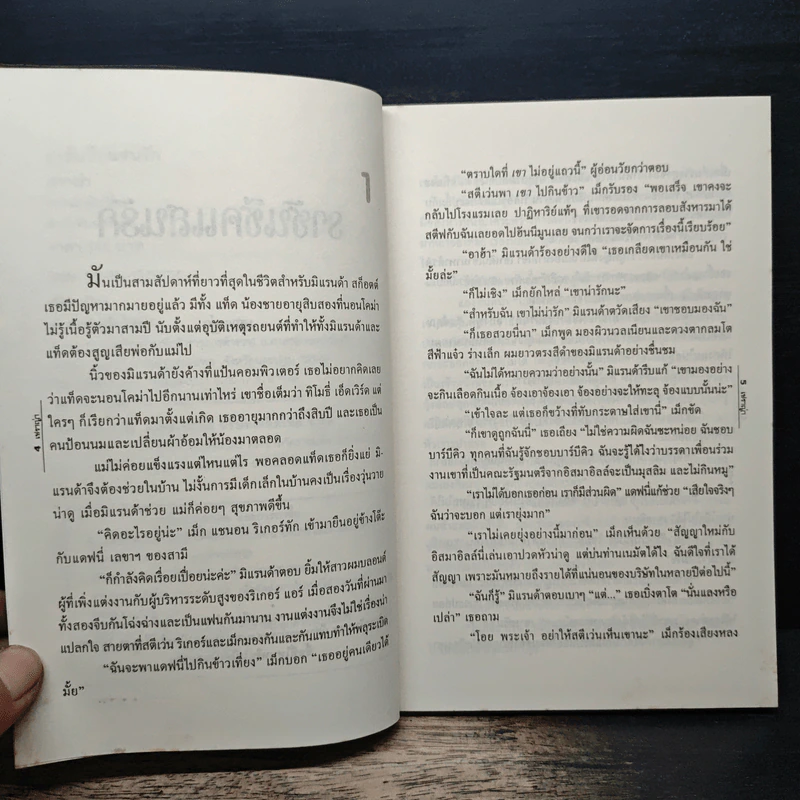 1
มันเป็นสามสัปดาห์ที่ยาวที่สุดในชีวิตสำหรับมิแรนด้า สก็อตต์
เธอมีปัญหามากมายอยู่แล้ว มีทั้ง แท็ด น้องชายอายุสิบสองที่นอนโคม่า
ไม่รู้เนื้อรู้ตัวมาสามปี นับตั้งแต่อุบัติเหตุรถยนต์ที่ทำให้ทั้งมิแรนด้าและ
แท็ดต้องสูญเสียพ่อกับแม่ไป
นิ้วของมิแรนด้ายังค้างที่แป้นคอมพิวเตอร์ เธอไม่อยากคิดเลย
ว่าแท็ดจะนอนโคม่าไปอีกนานเท่าไหร่ เขาชื่อเต็มว่า ทิโมธี่ เอ็ดเวิร์ด แต่
ใครๆ ก็เรียกว่าแท็ดมาตั้งแต่เกิด เธออายุมากกว่าถึงสิบปี และเธอเป็น
คนป้อนนมและเปลี่ยนผ้าอ้อมให้น้องมาตลอด
แม่ไม่ค่อยแข็งแรงแต่ไหนแต่ไร พอคลอดแท็ดเธอก็ยิ่งแย่ มิ-
แรนด้าจึงต้องช่วยในบ้าน ไม่งั้นการมีเด็กเล็กในบ้านคงเป็นเรื่องวุ่นวาย
น่าดู เมื่อมิแรนด้า ช่วย แม่ก็ค่อยๆ สุขภาพดีขึ้น
"คิดอะไรอยู่น่ะ" เม็ก แชนอน ริเกอร์ทัก เข้ามายืนอยู่ข้างโต๊ะ
กับแดฟนี่ เลขาฯ ของสามี
"ก็กำลังคิดเรื่อยเปื่อยน่ะค่ะ" มิแรนด้าตอบ ยิ้มให้สาวผมบลอนด์
ผู้ที่เพิ่งแต่งงานกับผู้บริหารระดับสูงของริเกอร์ แอร์ เมื่อสองวันที่ผ่านมา
ทั้งสองจีบกันโฉ่งฉ่างและเป็นแฟนกันมานาน งานแต่งงานจึงไม่ใช่เรื่องน่า
แปลกใจ สายตาที่สตีเว่น ริเกอร์และเม็กมองกันและกันแทบทำให้พลุระเบิด
"ฉันจะพาแดฟนี่ไปกินข้าวเที่ยง" เม็กบอก "เธออยู่คนเดียวได้
มั้ย"
4 เพราญ่า
"ตราบใดที่ เขา ไม่อยู่แถวนี้" ผู้อ่อนวัยกว่าตอบ
"สตีเว่นพา เขา ไปกินข้าว" เม็กรับรอง "พอเสร็จ เขาคงจะ
กลับไปโรงแรมเลย ปาฏิหาริย์แท้ๆ ที่เขารอดจากการลอบสังหารมาได้
สตีฟกับฉันเลยอดไปฮันนีมูนเลย จนกว่าเราจะจัดการเรื่องนี้เรียบร้อย"
"อาฮ้า" มิแรนด้าร้องอย่างดีใจ "เธอเกลียดเขาเหมือนกัน ใช่
มั้ยล่ะ"
"ก็ไม่เชิง" เม็กยักไหล่ "เขาน่ารักนะ"
"สำหรับฉัน เขาไม่น่ารัก" มิแรนด้าตวัดเสียง "เขาชอบมองฉัน"
"ก็เธอสวยนี่นา" เม็กพูด มองผิวนวลเนียนและดวงตากลมโต
สีฟ้าแจ๋ว ร่างเล็ก ผมยาวตรงสีดำของมิแรนด้าอย่างชื่นชม
"ฉันไม่ได้หมายความว่าอย่างนั้น" มิแรนด้ารีบแก้ "เขามองอย่าง
จะกินเลือดกินเนื้อ จ้องเอาจ้องเอา จ้องอย่างจะให้ทะลุ จ้องแบบนั้นน่ะ"
"เข้าใจละ แต่เธอก็ขว้างที่ทับกระดาษใส่เขานี่" เม็กขัด
"ก็เขาดูถูกฉันนี่" เธอเถียง "ไม่ใช่ความผิดฉันซะหน่อย ฉันชอบ
บาร์บีคิว ทุกคนที่ฉันรู้จักชอบบาร์บีคิว ฉันจะรู้ได้ไงว่าบรรดาเพื่อนร่วม
งานเขาที่เป็นคณะรัฐมนตรีจากอิสมาอิลล์จะเป็นมุสลิม และไม่กินหมู"
"เราไม่ได้บอกเธอก่อน เราก็มีส่วนผิด" แดฟนี่แก้ช่วย "เสียใจจริงๆ
ฉันว่าจะบอก แต่เรายุ่งมาก"
"เราไม่เคยยุ่งอย่างนี้มาก่อน" เม็กเห็นด้วย "สัญญาใหม่กับ
อิสมาอิลล์นี่เล่นเอาปวดหัวน่าดู แต่บ่นท่านเนมัตได้ไง ฉันดีใจที่เราได้
สัญญา เพราะมันหมายถึงรายได้ที่แน่นอนของบริษัทในหลายปีต่อไปนี้"
"ฉันก็รู้" มิแรนด้าตอบเบาๆ "แต่..." เธอเบิ่งตาโต "นั่นแลงหรือ
เปล่า" เธอถาม
"โอย พระเจ้า อย่าให้สตีเว่นเห็นเขานะ" เม็กร้องเสียงหลง